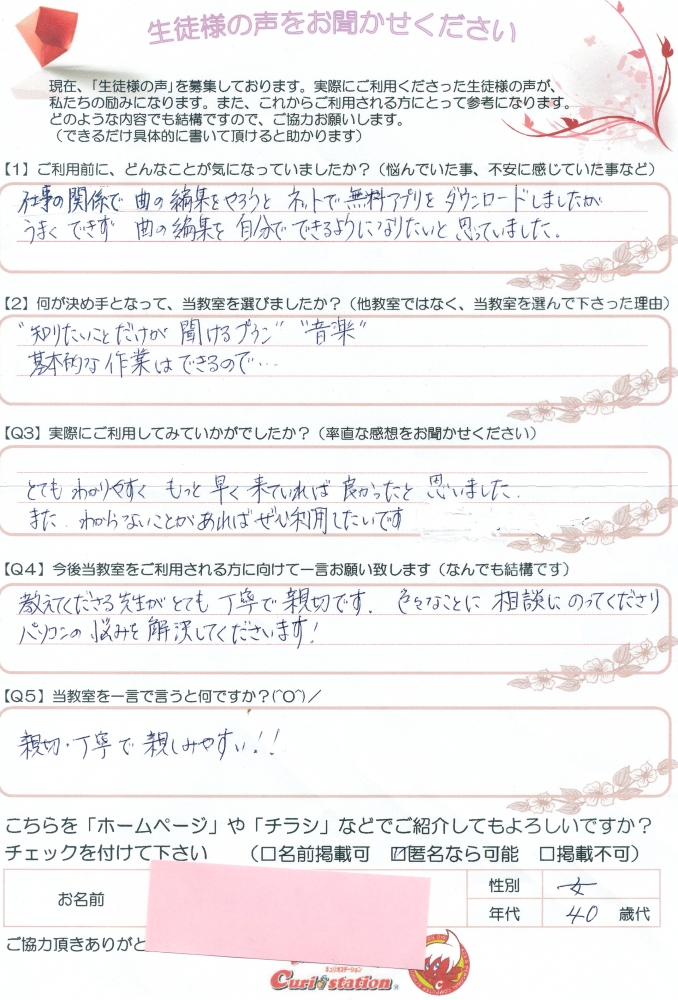 生徒様の声をお聞かせください
現在、「生徒様の声」を募集しております。実際にご利用くださった生徒様の声が、
私たちの励みになります。また、これからご利用される方にとって参考になります。
どのような内容でも結構ですので、ご協力お願いします。
（できるだけ具体的に書いて頂けると助かります）
【1】ご利用前に、どんなことが気になっていましたか？（悩んでいた事、不安に感じていた事など）
仕事の関係で 曲の編集をやろうと ネットで無料アプリを ダウンロードしましたが
うまくできず 曲の編集を 自分で できるようになりたいと思っていました。
【2】何が決め手となって、当教室を選びましたか？（他教室ではなく、当教室を選んで下さった理由）
"知りたいことだけが 聞けるプラン" "音楽"
基本的な作業はできるので…
【Q3】実際にご利用してみていかがでしたか？（率直な感想をお聞かせください）
とても わかりやすく もっと早く来ていれば 良かったと 思いました.
また. わからないことがあれば ぜひ利用したいです
【Q4】今後当教室をご利用される方に向けて一言お願い致します（なんでも結構です）
教えてくださる先生がとても 丁寧で親切です. 色々なことに 相談に のってくださり
パソコンの悩みを解決してくださいます!
【Q5】当教室を一言で言うと何ですか？(^O^)／
親切・丁寧で 親しみやすい!!
こちらを「ホームページ」や「チラシ」などでご紹介してもよろしいですか？
チェックを付けて下さい （□名前掲載可 ☑匿名なら可能 □掲載不可）
お名前
性別 女
年代 40 歳代
ご協力頂きありがと
キュリオステーション
Curiostation